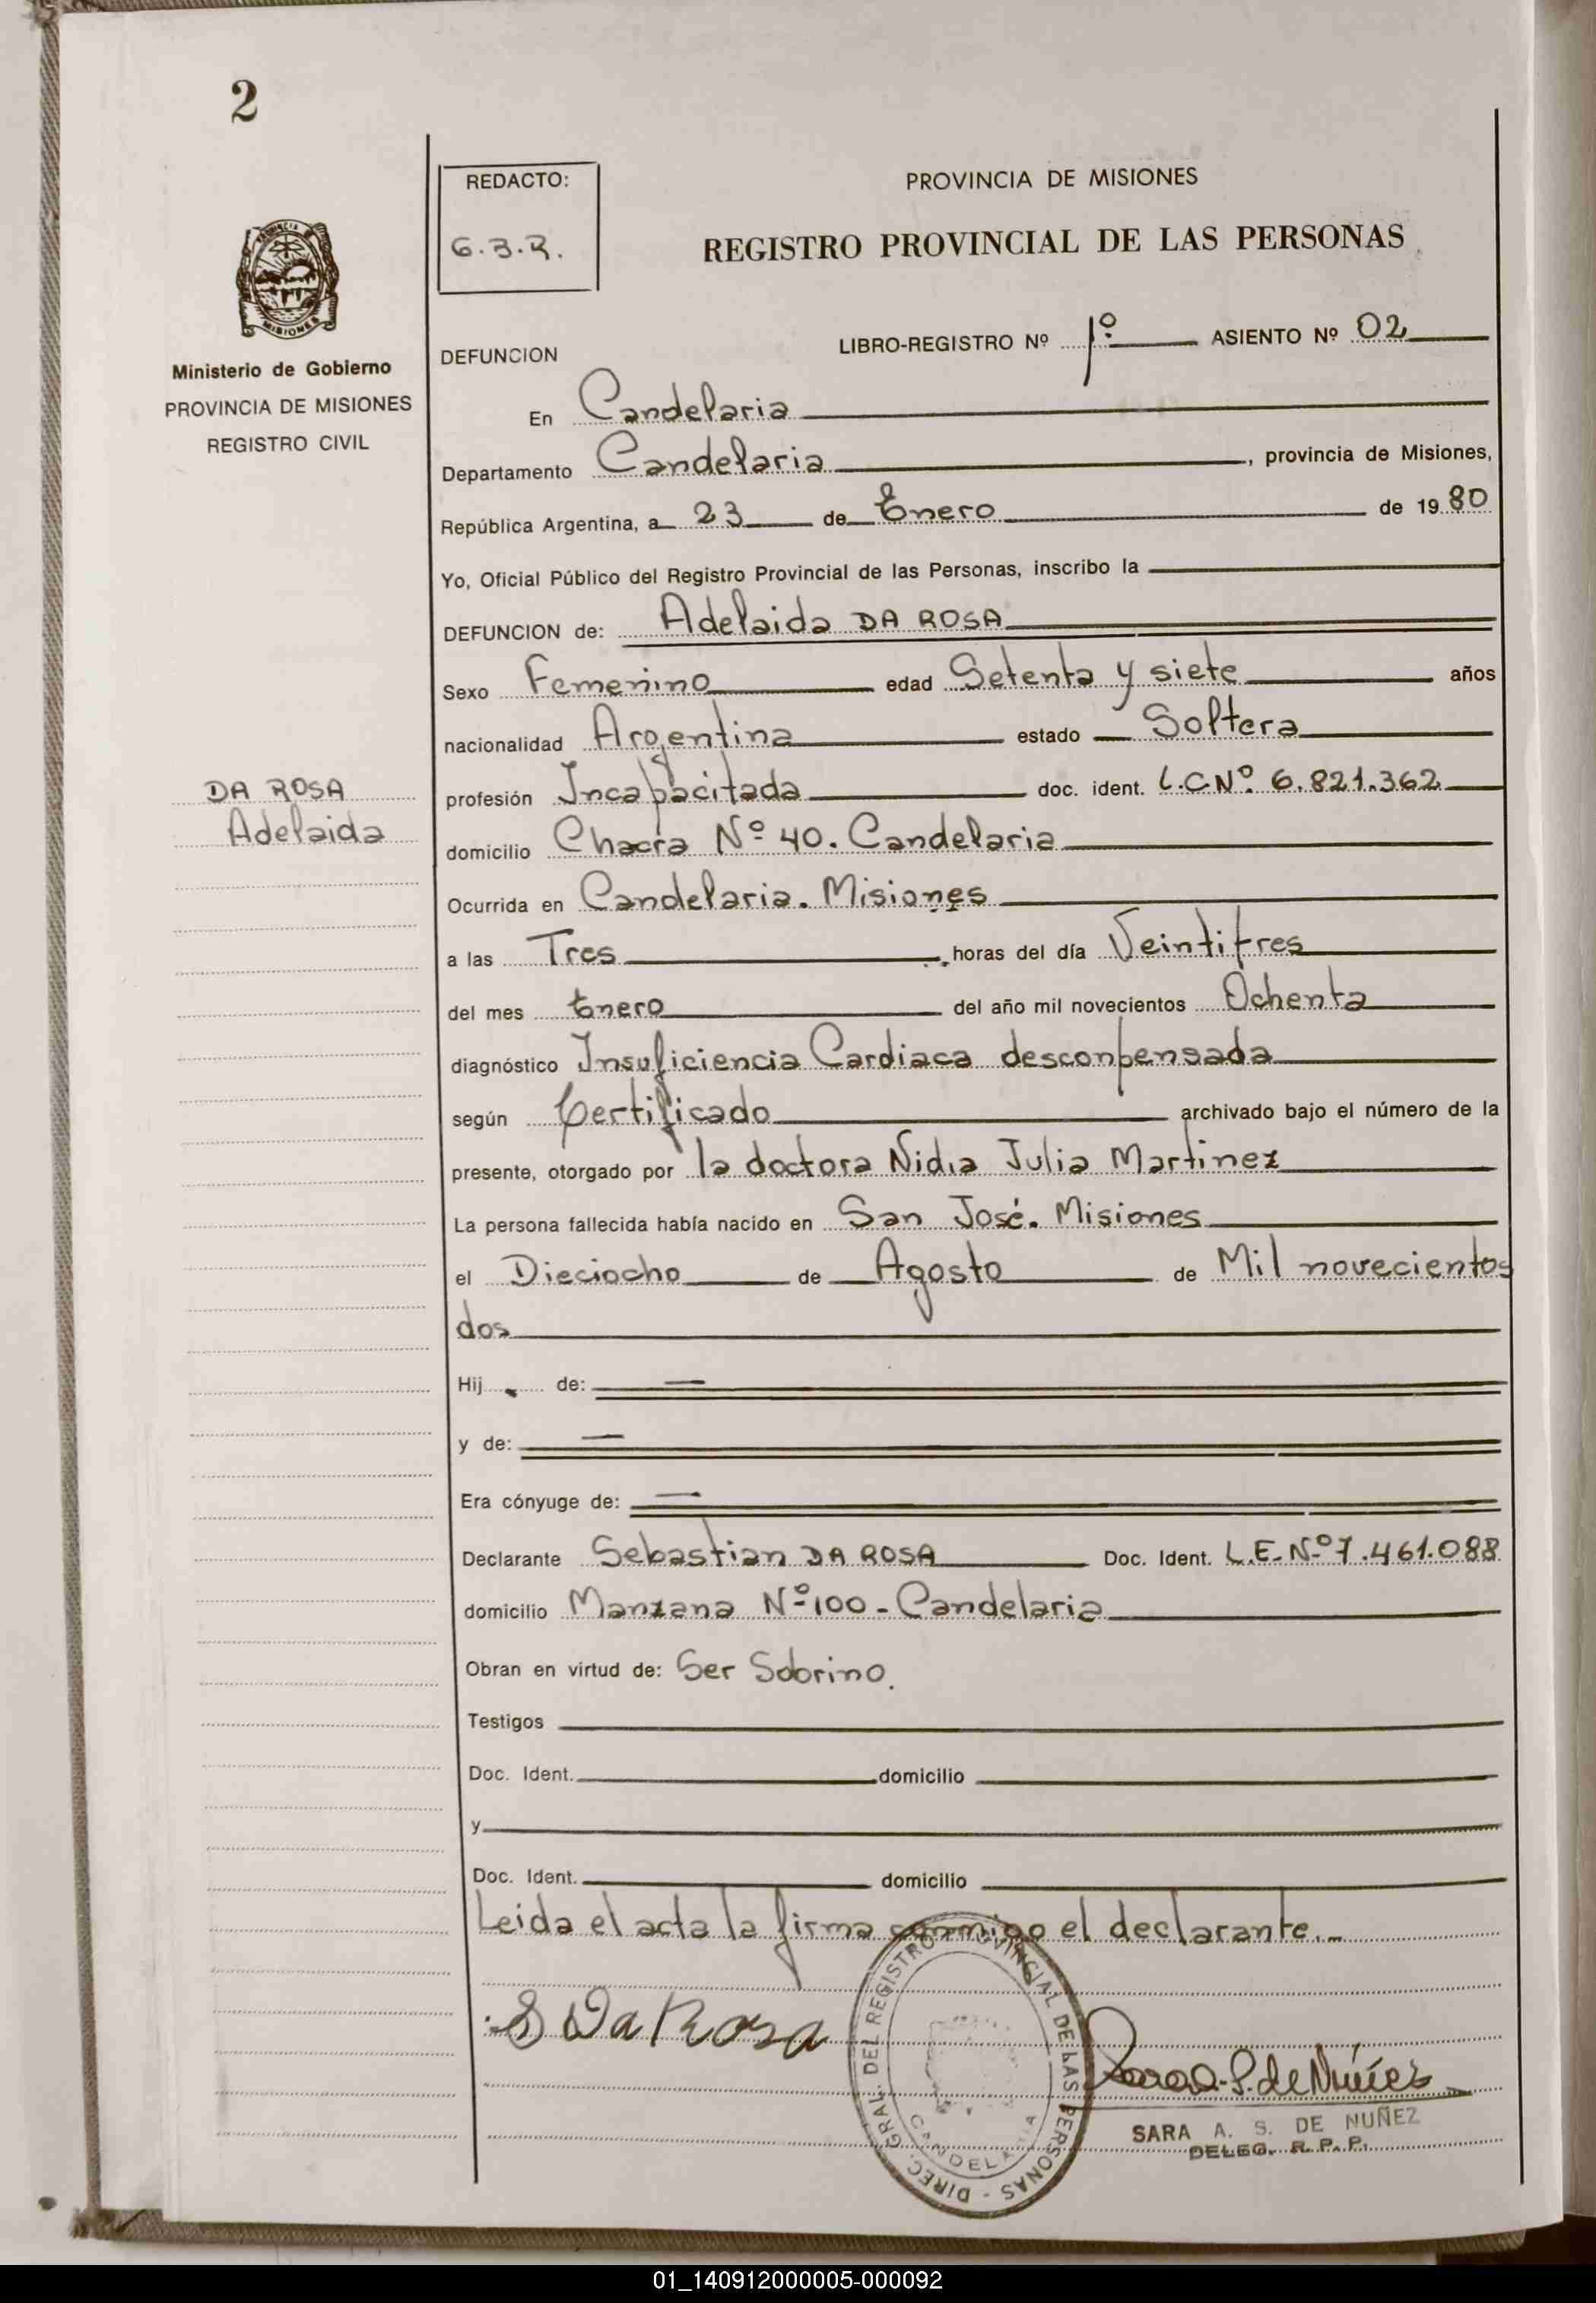 2
REDACTO:
G.B.R.
PROVINCIA DE MISIONES
REGISTRO PROVINCIAL DE LAS PERSONAS
PROVINCIA DE
MISIONES
Ministerio de Gobierno
PROVINCIA DE MISIONES
REGISTRO CIVIL
DEFUNCION LIBRO-REGISTRO Nº 1º ASIENTO Nº 02
En Candelaria
Departamento Candelaria, provincia de Misiones,
República Argentina, a 23 de Enero de 1980
Yo, Oficial Público del Registro Provincial de las Personas, inscribo la
DEFUNCION de: Adelaida DA ROSA
Sexo Femenino edad Setenta y siete años
nacionalidad Argentina estado Soltera
DA ROSA
Adelaida
profesión Incapacitada doc. ident. L.C.Nº 6.821.362
domicilio Chacra Nº 40. Candelaria
Ocurrida en Candelaria. Misiones
a las Tres, horas del día Veintitres
del mes Enero del año mil novecientos Ochenta
diagnóstico Insuficiencia Cardiaca desconpensada
según Certificado archivado bajo el número de la
presente, otorgado por la doctora Nidia Julia Martinez
La persona fallecida había nacido en San José. Misiones
el Dieciocho de Agosto de Mil novecientos
dos
Hij de: —
y de: —
Era cónyuge de: —
Declarante Sebastian DA ROSA Doc. Ident. L.E.Nº 7.461.088
domicilio Manzana Nº 100 - Candelaria
Obran en virtud de: Ser Sobrino.
Testigos
Doc. Ident. domicilio
y
Doc. Ident. domicilio
Leida el acta la firma conmigo el declarante.-
S Da Rosa
DIREC. GRAL. DEL REGISTRO PROVINCIAL DE LAS PERSONAS -
CANDELARIA
Sara A. S. de Nuñez
SARA A. S. DE NUÑEZ
DELEG. R. P. P.
01_140912000005-000092